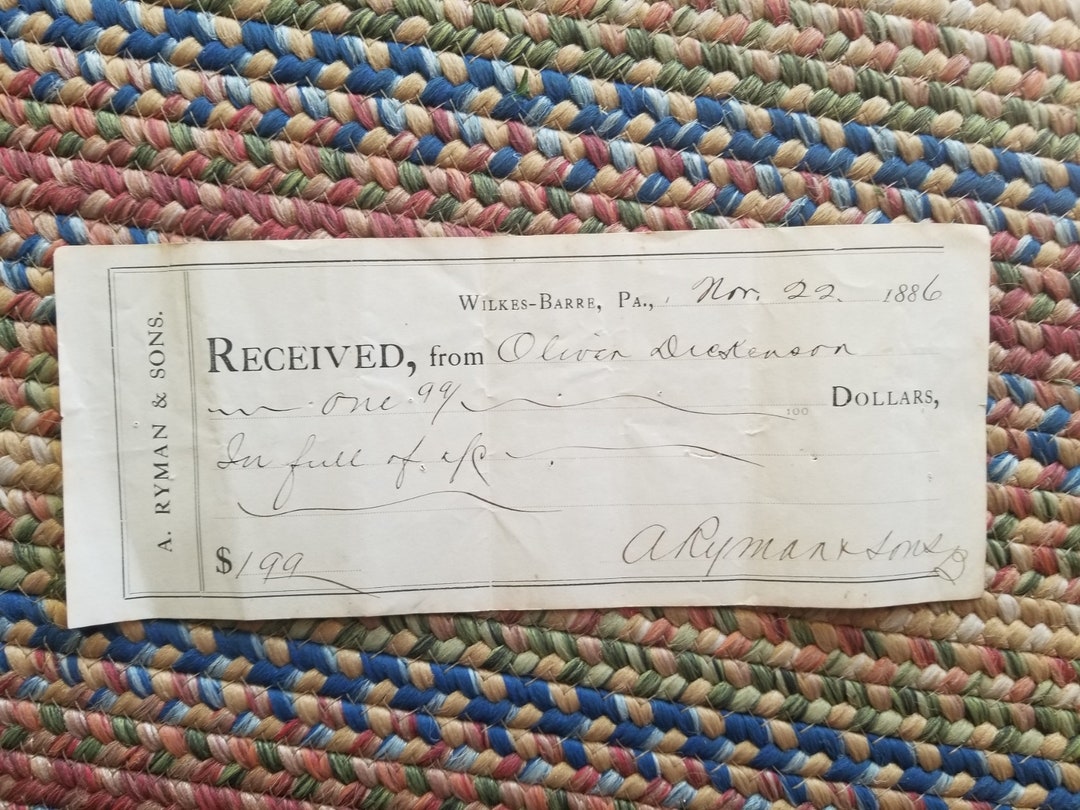 A. RYMAN & SONS.
WILKES-BARRE, PA., Nov. 22. 1886
RECEIVED, from Oliver Dickenson
one 99/100 DOLLARS,
In full of a/c
$199
A Ryman & Sons